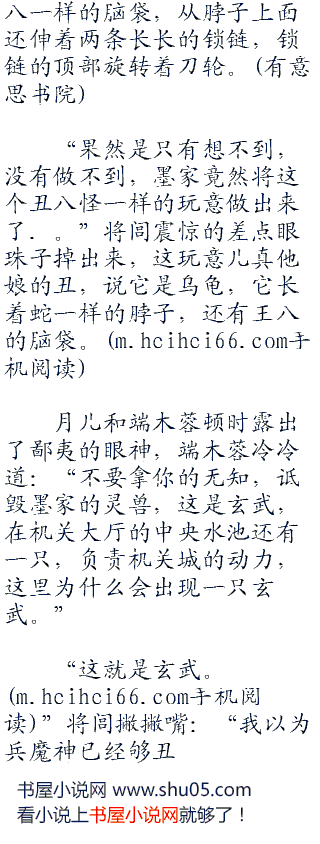 八一样的脑袋，从脖子上面
还伸着两条长长的锁链，锁
链的顶部旋转着刀轮。(有意
思书院)
“果然是只有想不到，
没有做不到，墨家竟然将这
个丑八怪一样的玩意做出来
了．。”将闾震惊的差点眼
珠子掉出来，这玩意儿真他
娘的丑，说它是乌龟，它长
着蛇一样的脖子，还有王八
的脑袋。(m.hcihci66.com手
机阅读)
月儿和端木蓉顿时露出
了鄙夷的眼神，端木蓉冷冷
道：“不要拿你的无知，诋
毁墨家的灵兽，这是玄武，
在机关大厅的中央水池还有
一只，负责机关城的动力，
这里为什么会出现一只玄
武。”
“这就是玄武。
(m.hcihci66.com手机阅
读)”将闾撇撇嘴：“我以为
兵魔神已经够丑
书屋小说网 www.shu05.com
看小说上书屋小说网就够了！